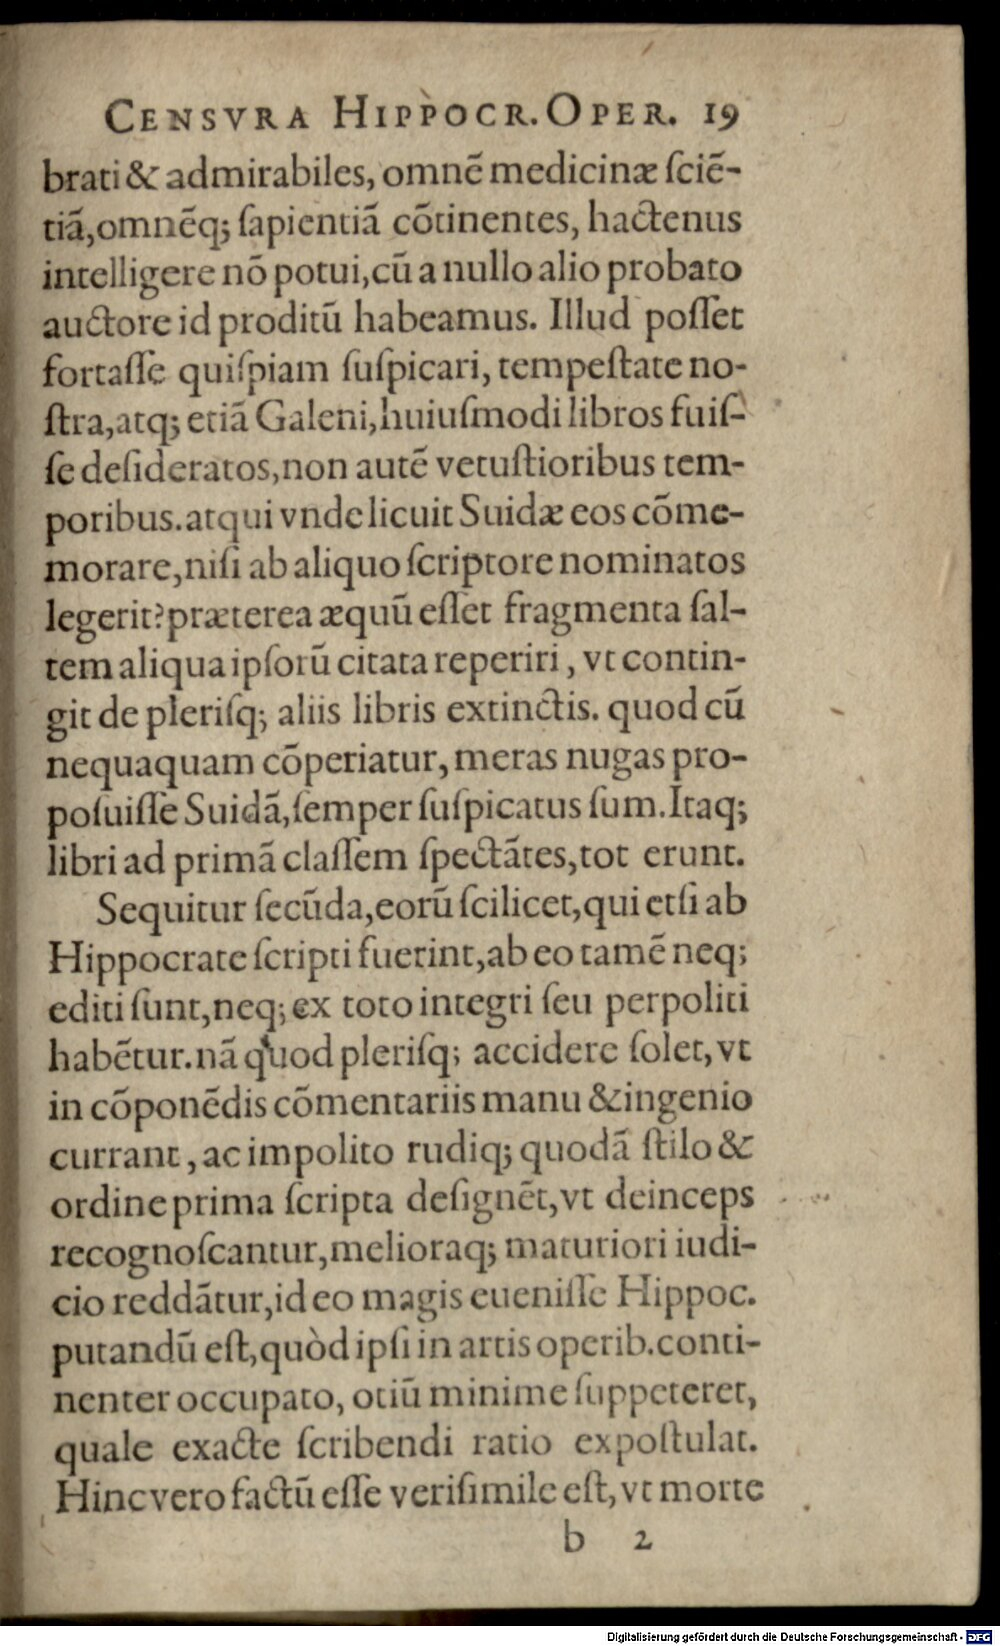 CENSVRA HIPPOCR. OPER. 19
brati & admirabiles, omnẽ medicinæ ſciẽ-
tiã, omnẽq; ſapientiã cõtinentes, hactenus
intelligere nõ potui, cũ a nullo alio probato
auctore id proditũ habeamus. Illud poſſet
fortaſſe quiſpiam ſuſpicari, tempeſtate no-
ſtra, atq; etiã Galeni, huiuſmodi libros fuiſ-
ſe deſideratos, non autẽ vetuſtioribus tem-
poribus. atqui vnde licuit Suidæ eos cõme-
morare, niſi ab aliquo ſcriptore nominatos
legerit? præterea æquũ eſſet fragmenta ſal-
tem aliqua ipſorũ citata reperiri, vt contin-
git de pleriſq; aliis libris extinctis. quod cũ
nequaquam cõperiatur, meras nugas pro-
poſuiſſe Suidã, ſemper ſuſpicatus ſum. Itaq;
libri ad primã claſſem ſpectãtes, tot erunt.
Sequitur ſecũda, eorũ ſcilicet, qui etſi ab
Hippocrate ſcripti fuerint, ab eo tamẽ neq;
editi ſunt, neq; ex toto integri ſeu perpoliti
habẽtur. nã quod pleriſq; accidere ſolet, vt
in cõponẽdis cõmentariis manu & ingenio
currant, ac impolito rudiq; quodã ſtilo &
ordine prima ſcripta deſignẽt, vt deinceps
recognoſcantur, melioraq; maturiori iudi-
cio reddãtur, id eo magis eueniſſe Hippoc.
putandũ eſt, quòd ipſi in artis operib. conti-
nenter occupato, otiũ minime ſuppeteret,
quale exacte ſcribendi ratio expoſtulat.
Hinc vero factũ eſſe veriſimile eſt, vt morte
b 2
Digitalisierung gefördert durch die Deutsche Forschungsgemeinschaft - DFG